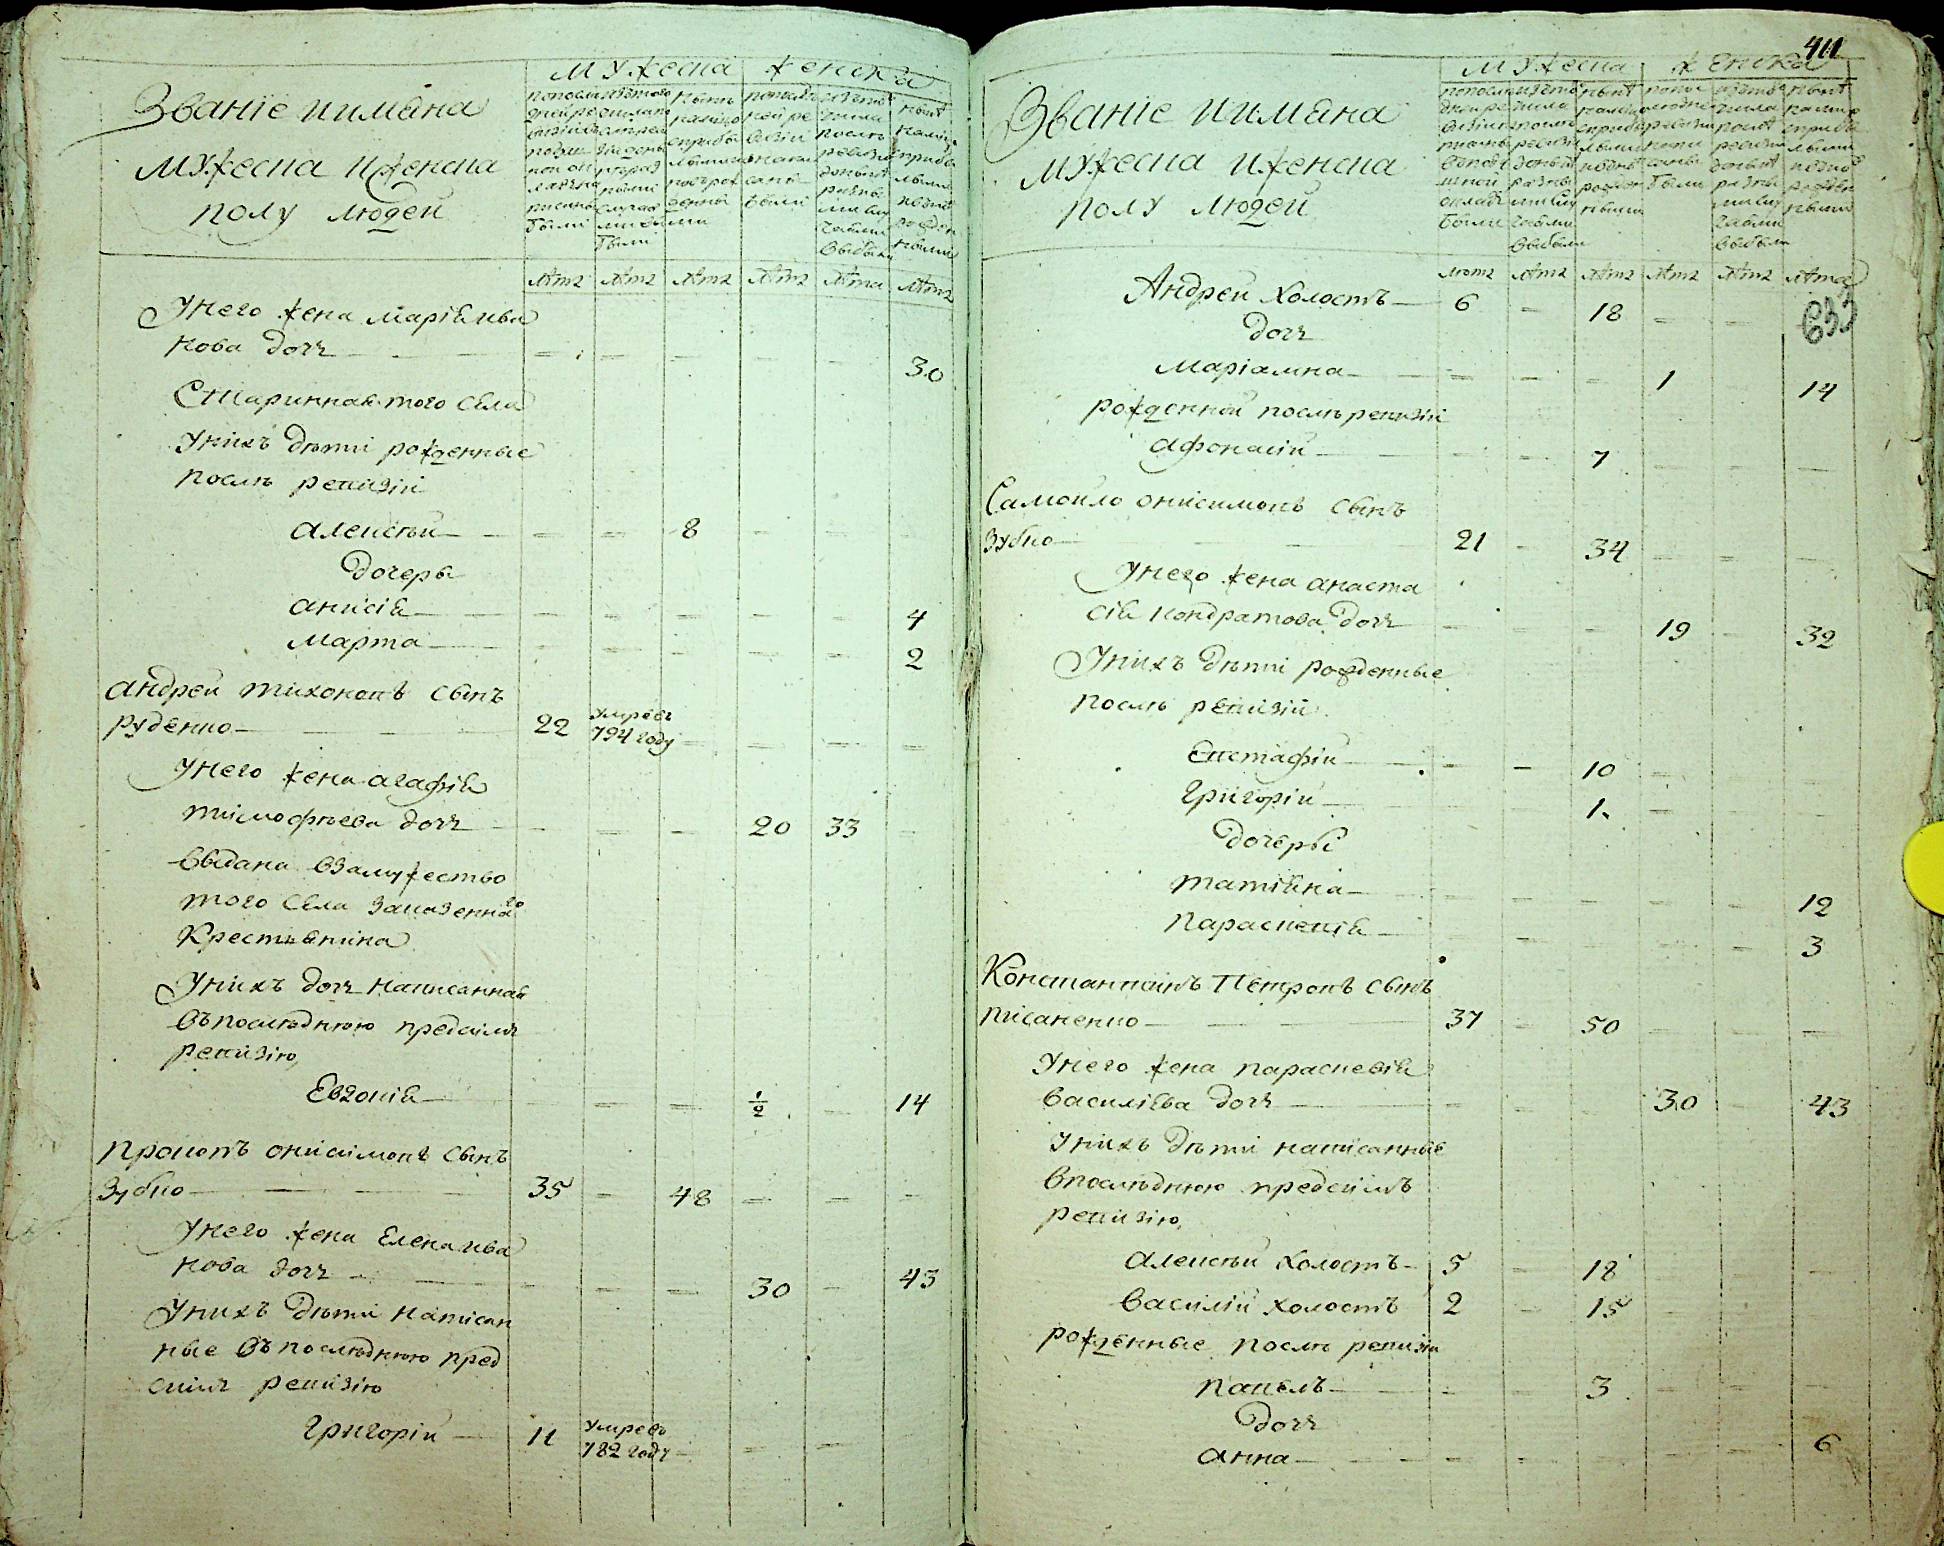 Званіе иимяна
мужеска иженска
полу людей
мужеска
женска
лѣтъ лѣтъ лѣтъ лѣтъ лѣта лѣтъ
Унего жена Марія ива
нова дочь 30
Старинная того села
Унихъ дѣти рожденные
послѣ ревизіи
алексѣй 8
дочеры
анисія 4
марта 2
андрей тихоновъ сынъ
руденко 22 умревъ 794 году
Унего жена агафія
тимофѣева дочь 20 33
выдана взамужество
того села заказеннаго
Крестьянина
Унихъ дочь написанная
въпослѣднюю предсимъ
ревизію,
Евгонія 1/2 14
прокопъ онисимовъ сынъ
Зубко 35 48
Унего жена Елена ива
нова дочь 30 43
Унихъ дѣти написан
ные въпослѣднюю пред
симъ ревизію
григорій 11 умревъ 782 году
411
Званіе иимяна
мужеска иженска
полу людей
мужеска
женска
лѣтъ лѣтъ лѣтъ лѣтъ лѣтъ лѣта
633
Андрей холостъ 6 18
дочь
Маріамна 1 14
рожденной послѣ ревизіи
афонасій 7
Самойло онисимовъ сынъ
Зубко 21 34
Унего жена анаста
сія кондратова дочь 19 32
Унихъ дѣти рожденные
послѣ ревизіи
Евстафій 10
григорій 1
дочеры
татіяна 12
параскевія 3
Константинъ Петровъ сынъ
писаненко 37 50
Унего жена параскевія
василіева дочь 30 43
Унихъ дѣти написанные
впослѣднюю предсимъ
ревизію,
алексѣй холостъ 5 18
василій холостъ 2 15
рожденные послѣ ревизіи
павелъ 3
дочь
анна 6